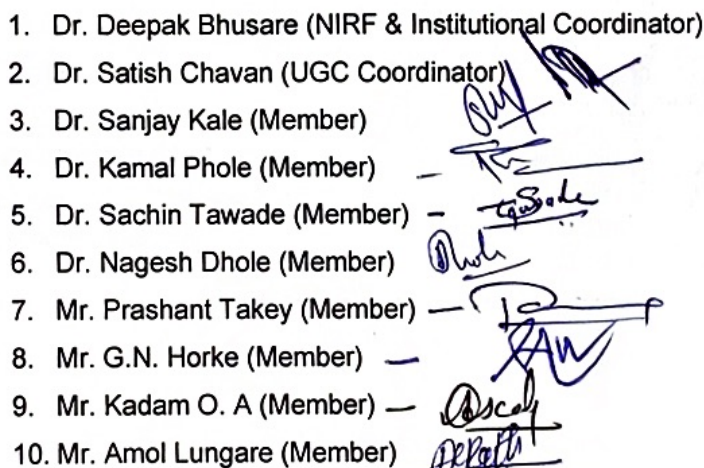 1. Dr. Deepak Bhusare (NIRF & Institutional Coordinator)
2. Dr. Satish Chavan (UGC Coordinator)
3. Dr. Sanjay Kale (Member)
4. Dr. Kamal Phole (Member) -
5. Dr. Sachin Tawade (Member) -
6. Dr. Nagesh Dhole (Member)
7. Mr. Prashant Takey (Member) -
8. Mr. G.N. Horke (Member) -
9. Mr. Kadam O. A (Member) -
10. Mr. Amol Lungare (Member)